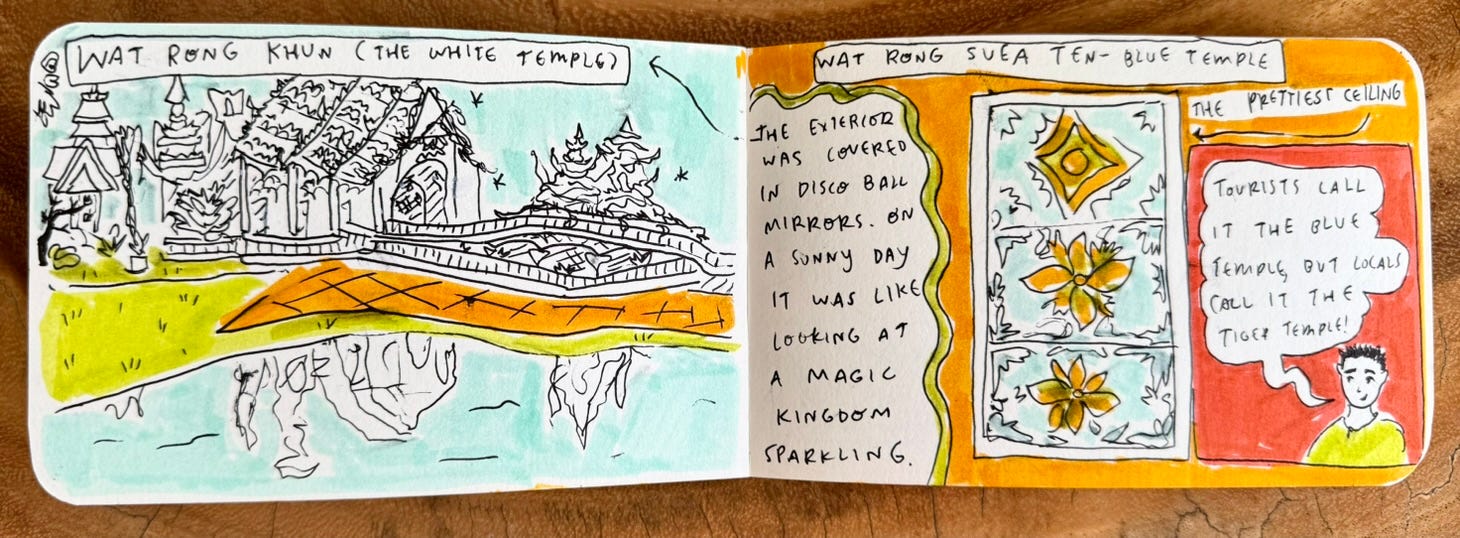 WAT RONG KHUN (THE WHITE TEMPLE)
THE EXTERIOR
WAS COVERED
IN DISCO BALL
MIRRORS. ON
A SUNNY DAY
IT WAS LIKE
LOOKING AT
A MAGIC
KINGDOM
SPARKLING.
WAT RONG SUEA TEN- BLUE TEMPLE
THE PRETTIEST CEILING
TOURISTS CALL
IT THE BLUE
TEMPLE, BUT LOCALS
CALL IT THE
TIGER TEMPLE!